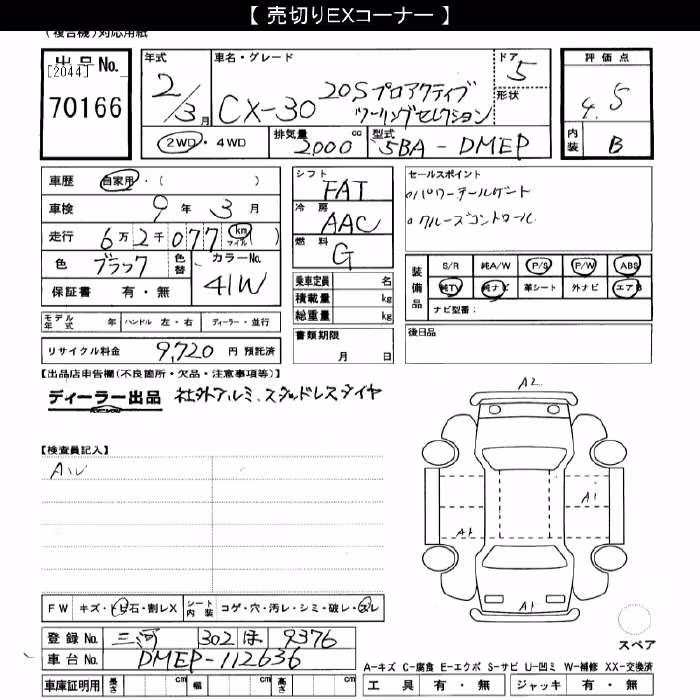 【 売切りEXコーナー 】
(複合機)対応用紙
出品 No.
[2044]
70166
年式
2/3月
車名・グレード
CX-30 20S プロアクティブ
ツーリングセレクション
ドア 5
形状
評価点
4.5
2WD・4WD
排気量 2000 cc
型式 5BA-DMEP
内装 B
車歴 自家用・( )
車検 9年 3月
走行 6万2千077 km マイル ( )
色 ブラック 色替 カラーNo. 41W
保証書 有・無
シフト FAT
冷房 AAC
燃料 G
乗車定員 名
積載量 kg
総重量 kg
セールスポイント
○パワーテールゲート
○クルーズコントロール
装備品
S/R 純A/W P/S P/W ABS
純TV 純ナビ 革シート 外ナビ エアB
ナビ型番:
モデル年式 年 ハンドル 左・右 ディーラー・並行
リサイクル料金 9,720 円 預託済
書類期限
月 日
後日品
【出品店申告欄(不良箇所・欠品・注意事項等)】
ディーラー出品 社外アルミ、スタッドレスタイヤ
【検査員記入】
AW
A2
A1
A1
A1
FW キズ・トビ石・割レX シート内装 コゲ・穴・汚レ・シミ・破レ・スレ
登録 No. 三河 302 ほ 9376
車台 No. DMEP-112636
車庫証明用 長さ cm 幅 cm 高さ cm
スペア
A-キズ C-腐食 E-エクボ S-サビ U-凹ミ W-補修 XX-交換済
工具 有・無 ジャッキ 有・無